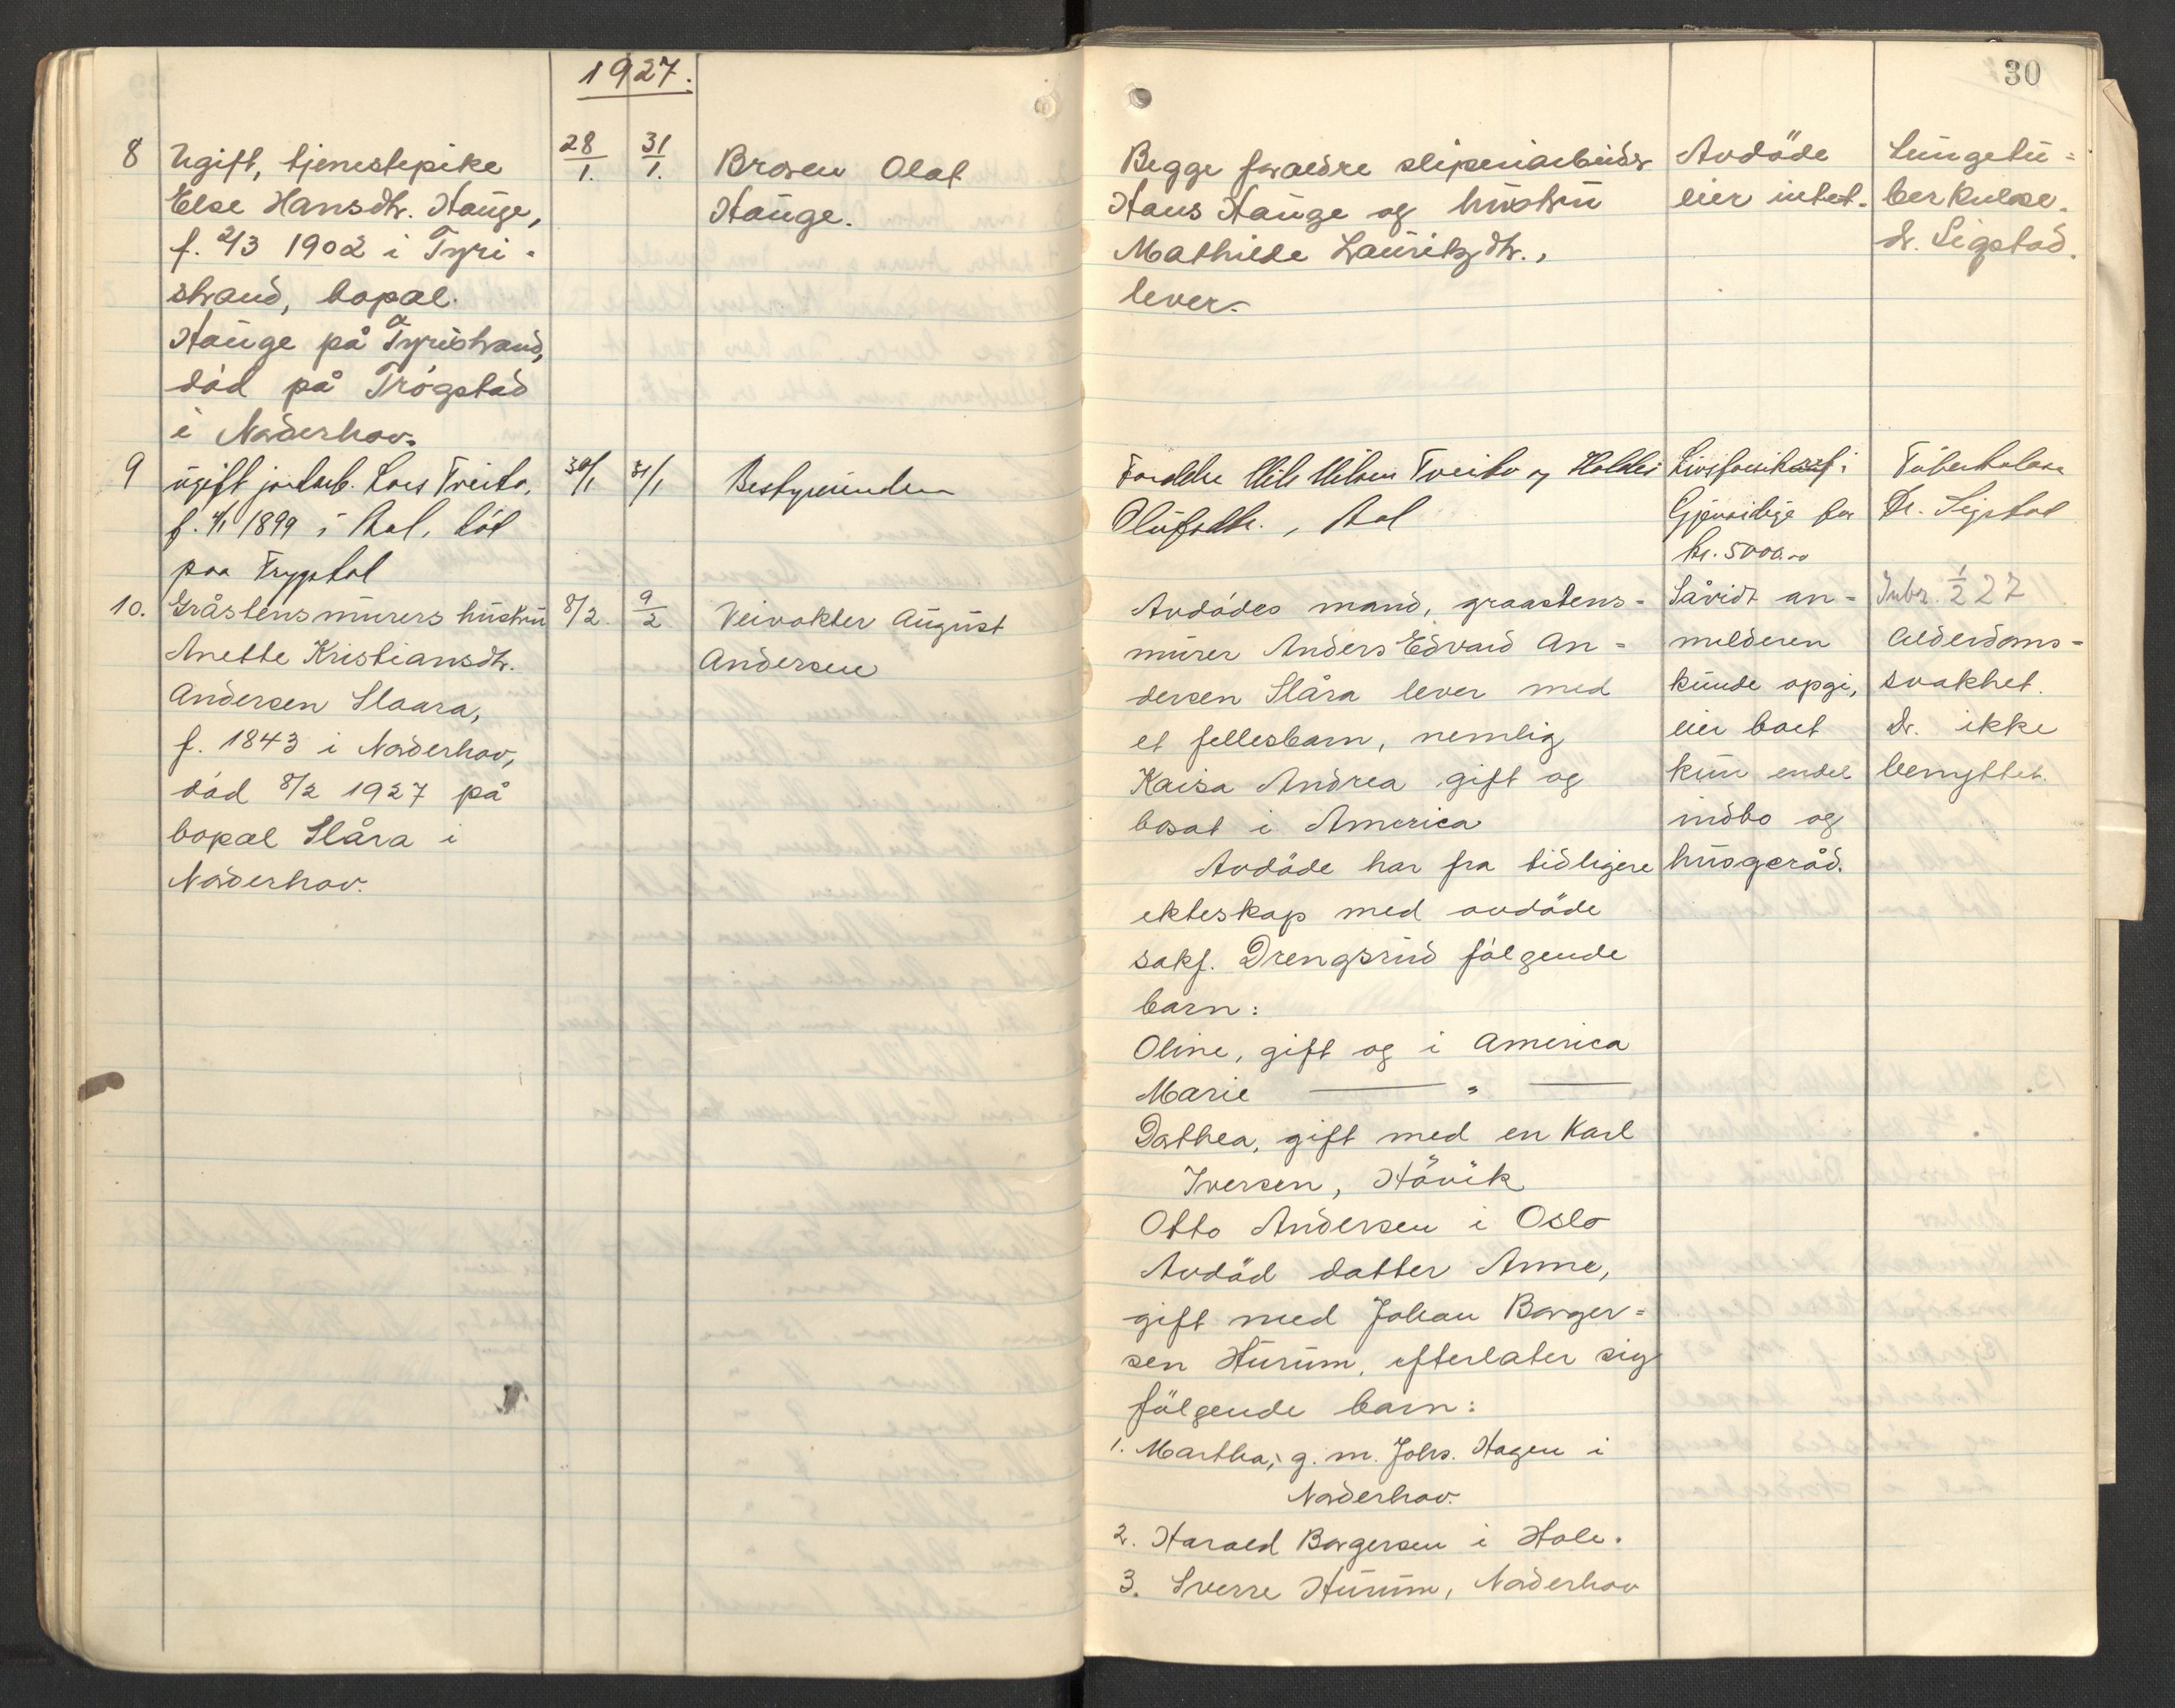 1927.
30
8 Ugift, tjenestepike
Else Hansdtr. Hauge,
f. 2/3 1902 i Tyri-
strand, bopæl
Hauge på Tyristrand,
död på Trögstad
i Norderhov.
28/1. 31/1.
Broren Olaf
Hauge.
Begge foraeldre sliperiarbeider
Hans Hauge og hustru
Mathilde Lauritzdtr.,
lever.
Avdöde
eier intet.
Lungetu=
berkulose.
dr. Sigstad.
9 ugift jordarb. Lars Treito,
f. 4/1 1899 i Aal, död
paa Trygstad
30/1 31/1
Bestyrerinden
Foreldre Nils Nilsen Tveito og Haldis
Olufsdtr., Aal
Livsforsikret i
Gjensidige for
kr. 5000.00
Tuberkulose
Dr. Sigstad
10. Gråstensmurers hustru
Anette Kristiansdtr.
Andersen Slaara,
f. 1843 i Norderhov,
död 8/2 1927 på
bopæl Slåra i
Norderhov.
8/2. 9/2
Veivokter August
Andersen
Avdödes mand, graastens-
murer Anders Edvard An=
dersen Slåra lever med
et fellesbarn, nemlig
Kaisa Andrea gift og
bosat i America
Avdöde har fra tidligere
ekteskap med avdöde
sakf. Drengsrud fölgende
barn:
Oline, gift og i America
Marie — " —
Dorthea, gift med en Karl
Iversen, Hövik
Otto Andersen i Oslo
Avdöd datter Anne,
gift med Johan Borger=
sen Hurum, efterlater sig
fölgende barn:
1. Martha, g. m. Johs. Hagen i
Norderhov.
2. Harald Borgersen i Hole.
3. Sverre Hurum, Norderhov
Såvidt an=
melderen
kunde opgi,
eier boet
kun endel
indbo og
husgeråd.
27
Alderdoms=
svakhet.
Dr. ikke
benyttet.